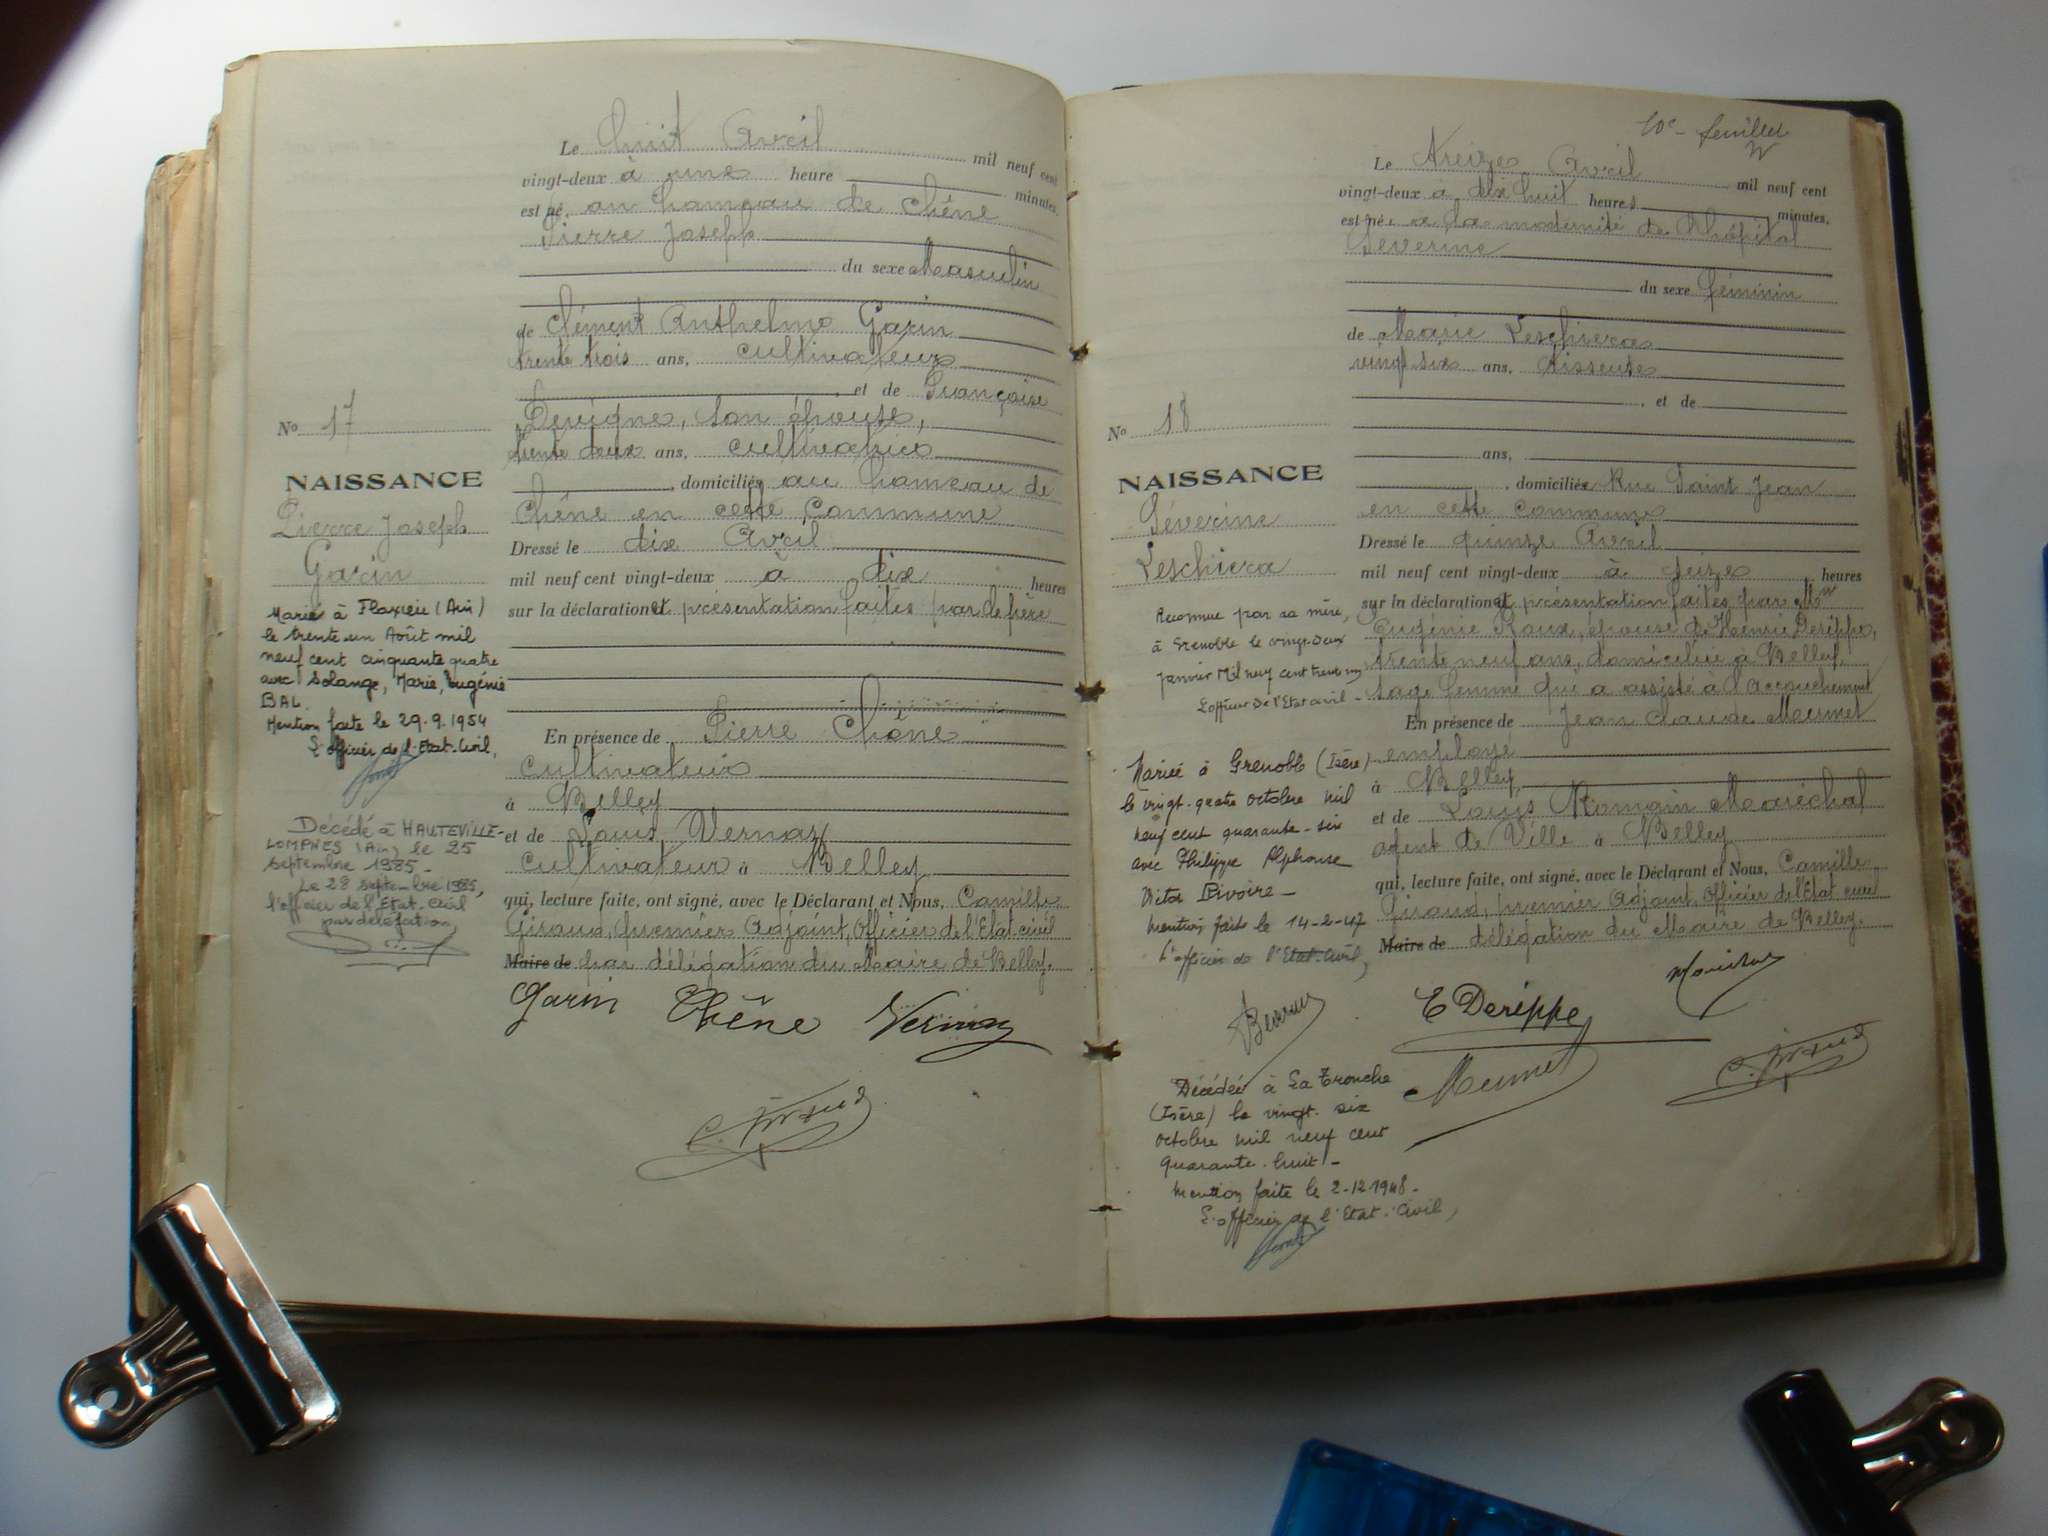 Le huit Avril mil neuf cent
vingt-deux à une heure minutes,
est né, au hameau de Chêne
Pierre Joseph
du sexe Masculin
de Clément Anthelme Garin
trente trois ans, cultivateur
et de Françoise
Devigne, son épouse,
trente deux ans, cultivatrice
, domiciliés au hameau de
Chêne en cette commune
Dressé le dix Avril
mil neuf cent vingt-deux à dix heures
sur la déclaration et présentation faites par le père
En présence de Pierre Chêne
cultivateur
à Belley
et de Louis Vernay
cultivateur à Belley
qui, lecture faite, ont signé, avec le Déclarant et Nous, Camille
Giraud, premier Adjoint, Officier de l'Etat civil
Maire de par délégation du Maire de Belley.
Garin Chêne Vernay
C. Giraud
No 17
NAISSANCE
Pierre Joseph
Garin
Marié à Flaxieu (Ain)
le trente un Août mil
neuf cent cinquante quatre
avec Solange, Marie, Eugénie
BAL.
Mention faite le 29.9.1954
L'officier de l'Etat-Civil,
Décédé à HAUTEVILLE-
LOMPNES (Ain) le 25
septembre 1985.
Le 28 septembre 1985,
l'officier de l'Etat-Civil
par délégation
10e feuillet
Le treize Avril mil neuf cent
vingt-deux à dix huit heures minutes,
est née à la maternité de l'hôpital
Séverine
du sexe féminin
de Marie Leschiera
vingt six ans, tisseuse
, et de
ans,
, domiciliée Rue Saint Jean
en cette commune
Dressé le quinze Avril
mil neuf cent vingt-deux à seize heures
sur la déclaration et présentation faites par Me
Eugénie Roux, épouse de Henri Dérippe,
trente neuf ans, domiciliée à Belley,
sage femme qui a assisté à l'accouchement
En présence de Jean Claude Meunet
employé
à Belley,
et de Louis Romain Maréchal
agent de Ville à Belley
qui, lecture faite, ont signé, avec le Déclarant et Nous, Camille
Giraud, premier Adjoint, Officier de l'Etat civil
Maire de délégation du Maire de Belley.
E Derippe
Meunet
C. Giraud
No 18
NAISSANCE
Séverine
Leschiera
Reconnue par sa mère,
à Grenoble le vingt-deux
Janvier Mil neuf cent trente un
L'officier de l'Etat civil -
Mariée à Grenoble (Isère)
le vingt-quatre octobre mil
neuf cent quarante-six
avec Philippe Alphonse
Victor Pivoire -
Mention faite le 14-2-47
L'officier de l'Etat-Civil,
Décédée à La Tronche
(Isère) le vingt-six
octobre mil neuf cent
quarante-huit -
Mention faite le 2-12-1948-
L'officier de l'Etat-Civil,